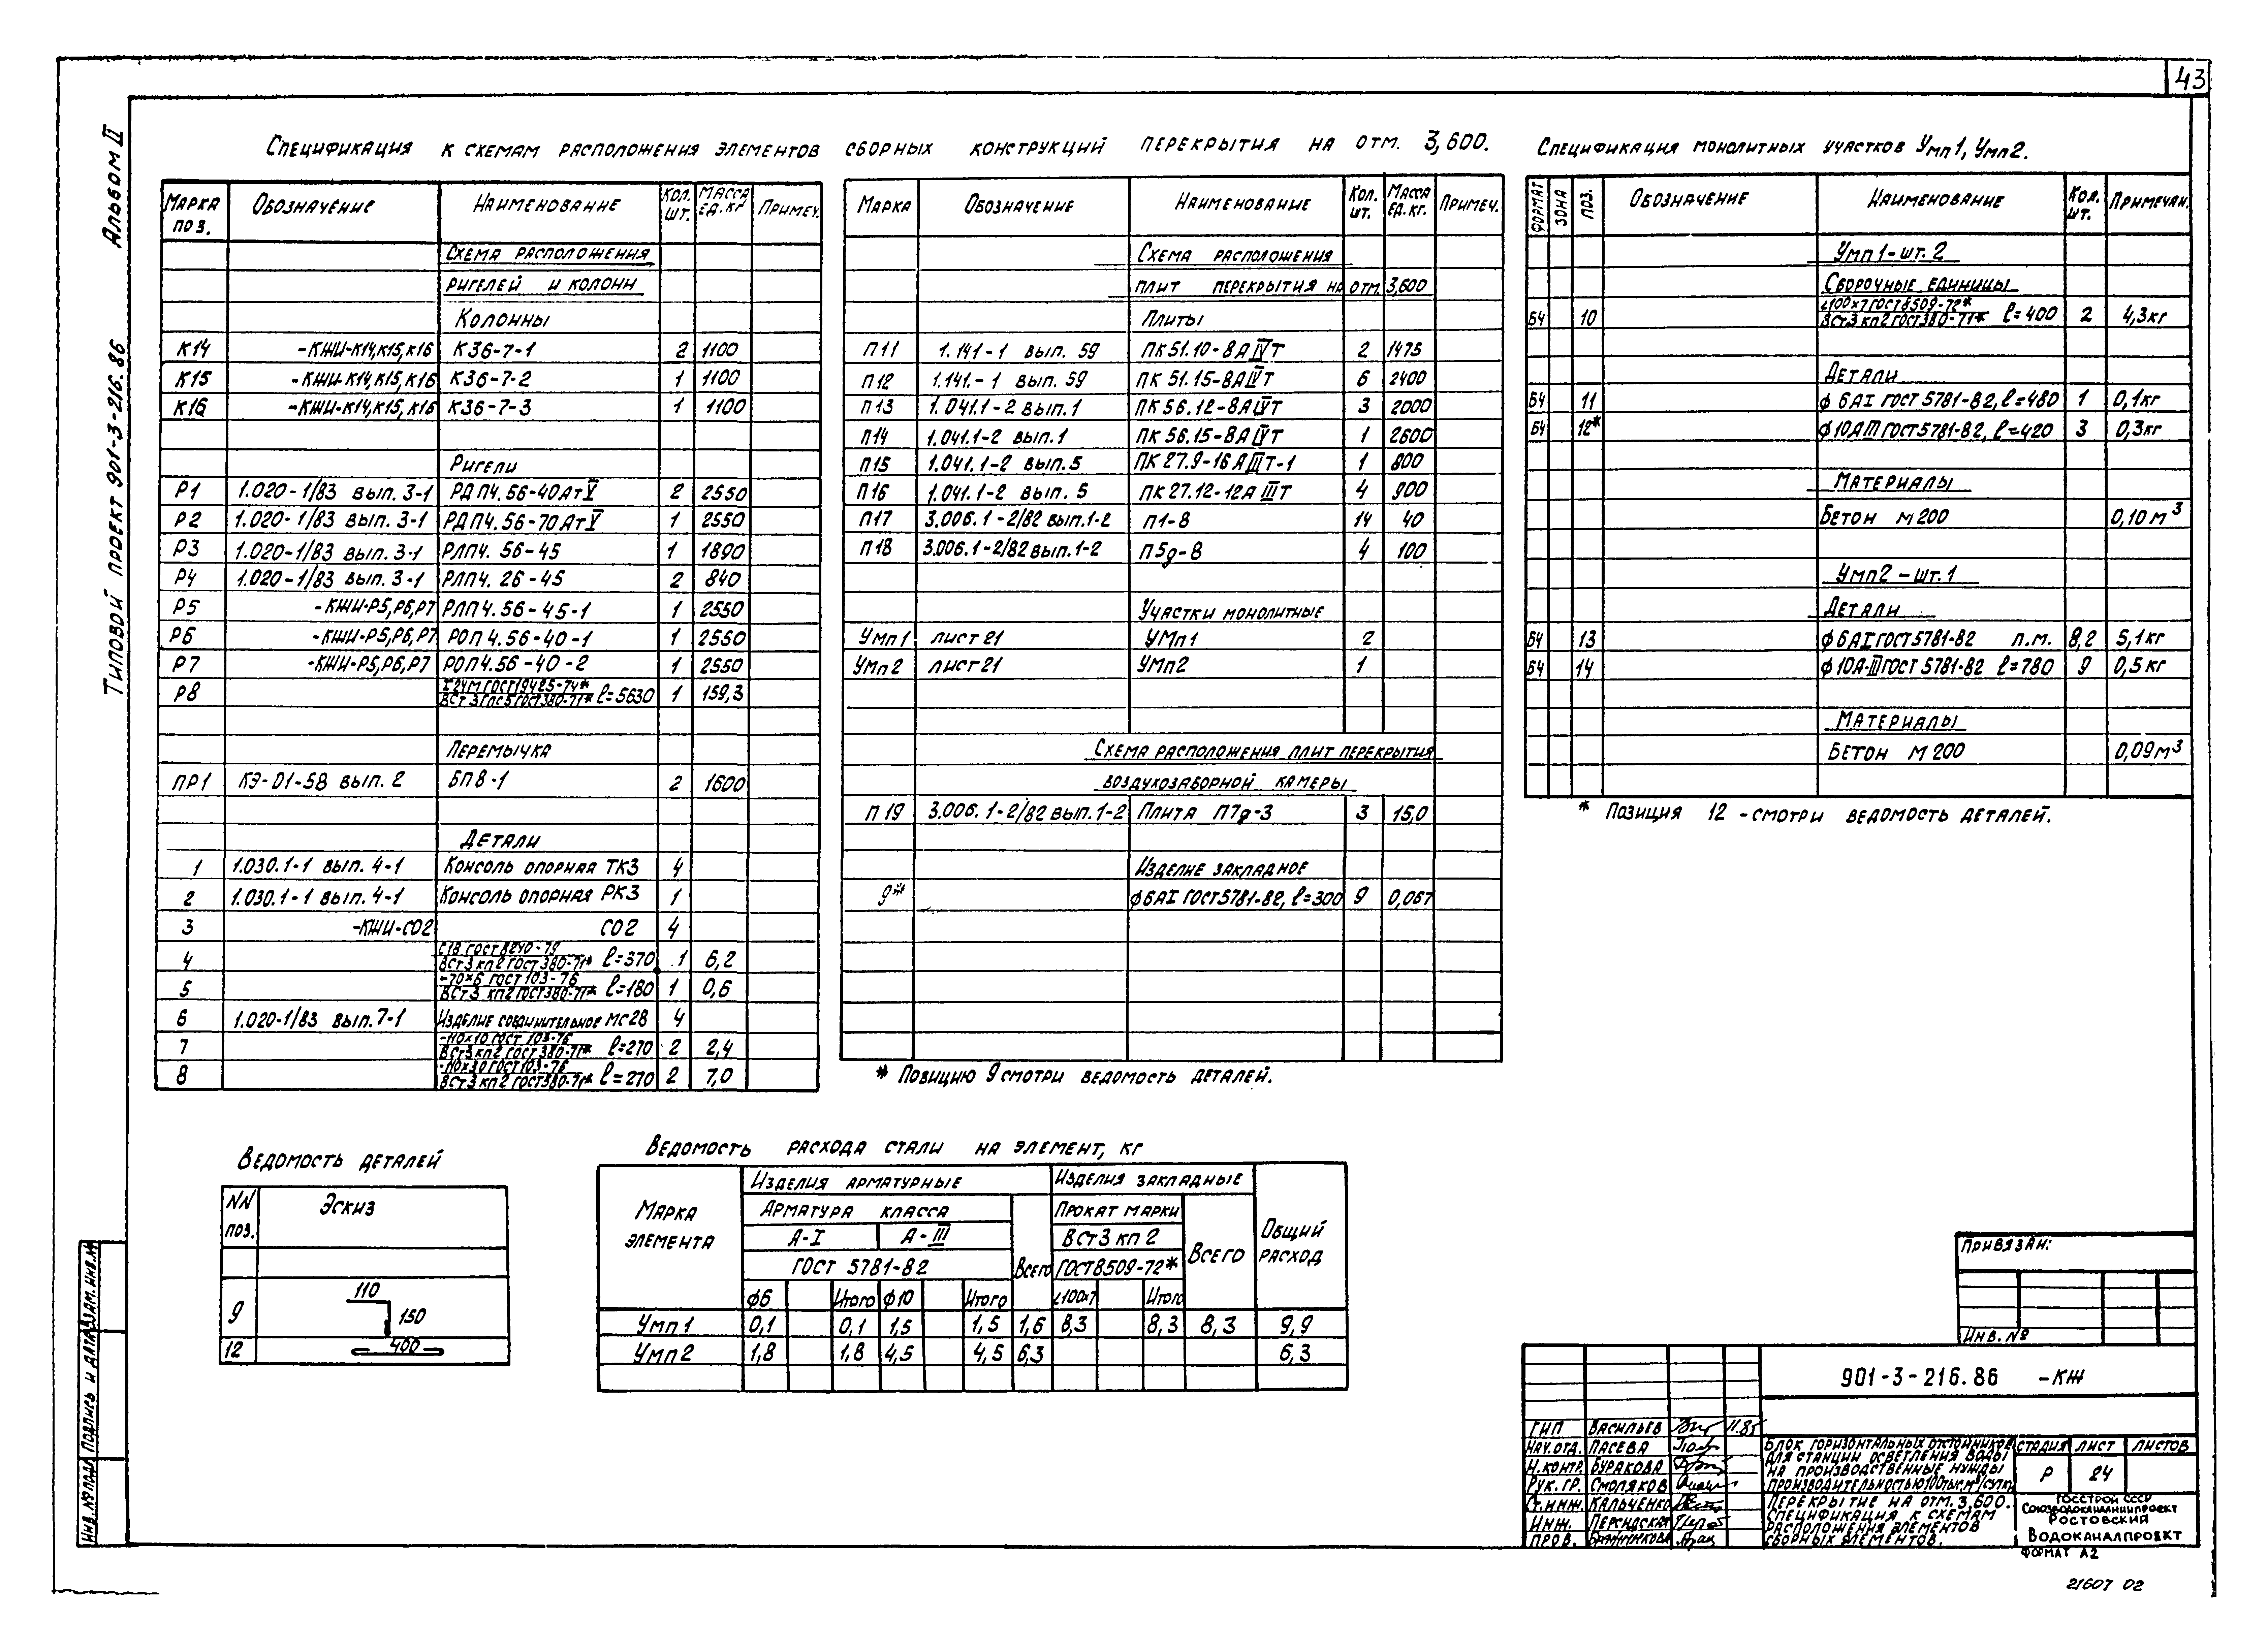 43
Альбом II
Типовой проект 901-3-216.86
Спецификация к схемам расположения элементов сборных конструкций перекрытия на отм. 3,600.
Марка поз. Обозначение Наименование Кол. шт. Масса ед. кг Примеч.
Схема расположения
ригелей и колонн
Колонны
К14 -КЖИ-К14,К15,К16 К36-7-1 2 1100
К15 -КЖИ-К14,К15,К16 К36-7-2 1 1100
К16 -КЖИ-К14,К15,К16 К36-7-3 1 1100
Ригели
Р1 1.020-1/83 вып. 3-1 РДП4.56-40АтV 2 2550
Р2 1.020-1/83 вып. 3-1 РДП4.56-70АтV 1 2550
Р3 1.020-1/83 вып. 3-1 РЛП4.56-45 1 1890
Р4 1.020-1/83 вып. 3-1 РЛП4.26-45 2 840
Р5 -КЖИ-Р5,Р6,Р7 РЛП4.56-45-1 1 2550
Р6 -КЖИ-Р5,Р6,Р7 РОП4.56-40-1 1 2550
Р7 -КЖИ-Р5,Р6,Р7 РОП4.56-40-2 1 2550
Р8 I24М ГОСТ19425-74* ВСт3Гпс5ГОСТ380-71* ℓ=5630 1 159,3
Перемычка
ПР1 КЭ-01-58 вып. 2 БП8-1 2 1600
Детали
1 1.030.1-1 вып. 4-1 Консоль опорная ТК3 4
2 1.030.1-1 вып. 4-1 Консоль опорная РК3 1
3 -КЖИ-СО2 СО2 4
4 С18 ГОСТ8240-79 ВСт3кп2ГОСТ380-71* ℓ=370 1 6,2
5 -70×6 ГОСТ103-76 ВСт3кп2ГОСТ380-71* ℓ=180 1 0,6
6 1.020-1/83 вып. 7-1 Изделие соединительное МС28 4
7 -110×10 ГОСТ103-76 ВСт3кп2ГОСТ380-71* ℓ=270 2 2,4
8 -110×30 ГОСТ103-76 ВСт3кп2ГОСТ380-71* ℓ=270 2 7,0
Марка Обозначение Наименование Кол. шт. Масса ед.кг. Примеч.
Схема расположения
плит перекрытия на отм. 3,600
Плиты
П11 1.141-1 вып. 59 ПК51.10-8АIVТ 2 1475
П12 1.141-1 вып. 59 ПК51.15-8АIVТ 6 2400
П13 1.041.1-2 вып. 1 ПК56.12-8АIVТ 3 2000
П14 1.041.1-2 вып. 1 ПК56.15-8АIVТ 1 2600
П15 1.041.1-2 вып. 5 ПК27.9-16АIIIТ-1 1 800
П16 1.041.1-2 вып. 5 ПК27.12-12АIIIТ 4 900
П17 3.006.1-2/82 вып.1-2 П1-8 14 40
П18 3.006.1-2/82 вып.1-2 П5д-8 4 100
Участки монолитные
УМп1 лист 21 УМп1 2
УМп2 лист 21 УМп2 1
Схема расположения плит перекрытия
воздухозаборной камеры
П19 3.006.1-2/82 вып.1-2 Плита П7д-3 3 15,0
Изделие закладное
9* ϕ6АI ГОСТ5781-82, ℓ=300 9 0,067
* Позицию 9 смотри ведомость деталей.
Спецификация монолитных участков Умп1, Умп2.
Формат Зона Поз. Обозначение Наименование Кол. шт. Примечан.
Умп1-шт. 2
Сборочные единицы
БЧ 10 ∟100×7 ГОСТ8509-72* ВСт3кп2ГОСТ380-71* ℓ=400 2 4,3кг
Детали
БЧ 11 ϕ6АI ГОСТ 5781-82, ℓ=480 1 0,1кг
БЧ 12* ϕ10АIII ГОСТ5781-82, ℓ=420 3 0,3кг
Материалы
Бетон М200 0,10м³
Умп2-шт.1
Детали
БЧ 13 ϕ6АI ГОСТ5781-82 п.м. 8,2 5,1кг
БЧ 14 ϕ10А-III ГОСТ 5781-82 ℓ=780 9 0,5кг
Материалы
Бетон М200 0,09м³
* Позиция 12 - смотри ведомость деталей.
Ведомость деталей
NN поз. Эскиз
9 110 150
12 400
Ведомость расхода стали на элемент, кг
Марка элемента Изделия арматурные Изделия закладные Общий расход
Арматура класса Всего Прокат марки Всего
А-I А-III ВСт3кп2
ГОСТ 5781-82 ГОСТ8509-72*
ϕ6 Итого ϕ10 Итого ∟100×7 Итого
Умп1 0,1 0,1 1,5 1,5 1,6 8,3 8,3 8,3 9,9
Умп2 1,8 1,8 4,5 4,5 6,3 6,3
Привязан:
Инв. №
901-3-216.86 -КЖ
ГИП Васильев 11.85
Нач.отд. Пасева
Н.контр. Буракова
Рук.гр. Смоляков
Ст.инж. Кальченко
Инж. Персидская
Пров.
Блок горизонтальных отстойников
для станции осветления воды
на производственные нужды
производительностью 100тыс.м³/сутки
Стадия Лист Листов
Р 24
Перекрытие на отм. 3,600.
Спецификация к схемам
расположения элементов
сборных элементов.
Госстрой СССР
Союзводоканалниипроект
Ростовский
Водоканалпроект
Формат А2
21607 02
Инв.№подл. Подпись и дата Взам.инв.№